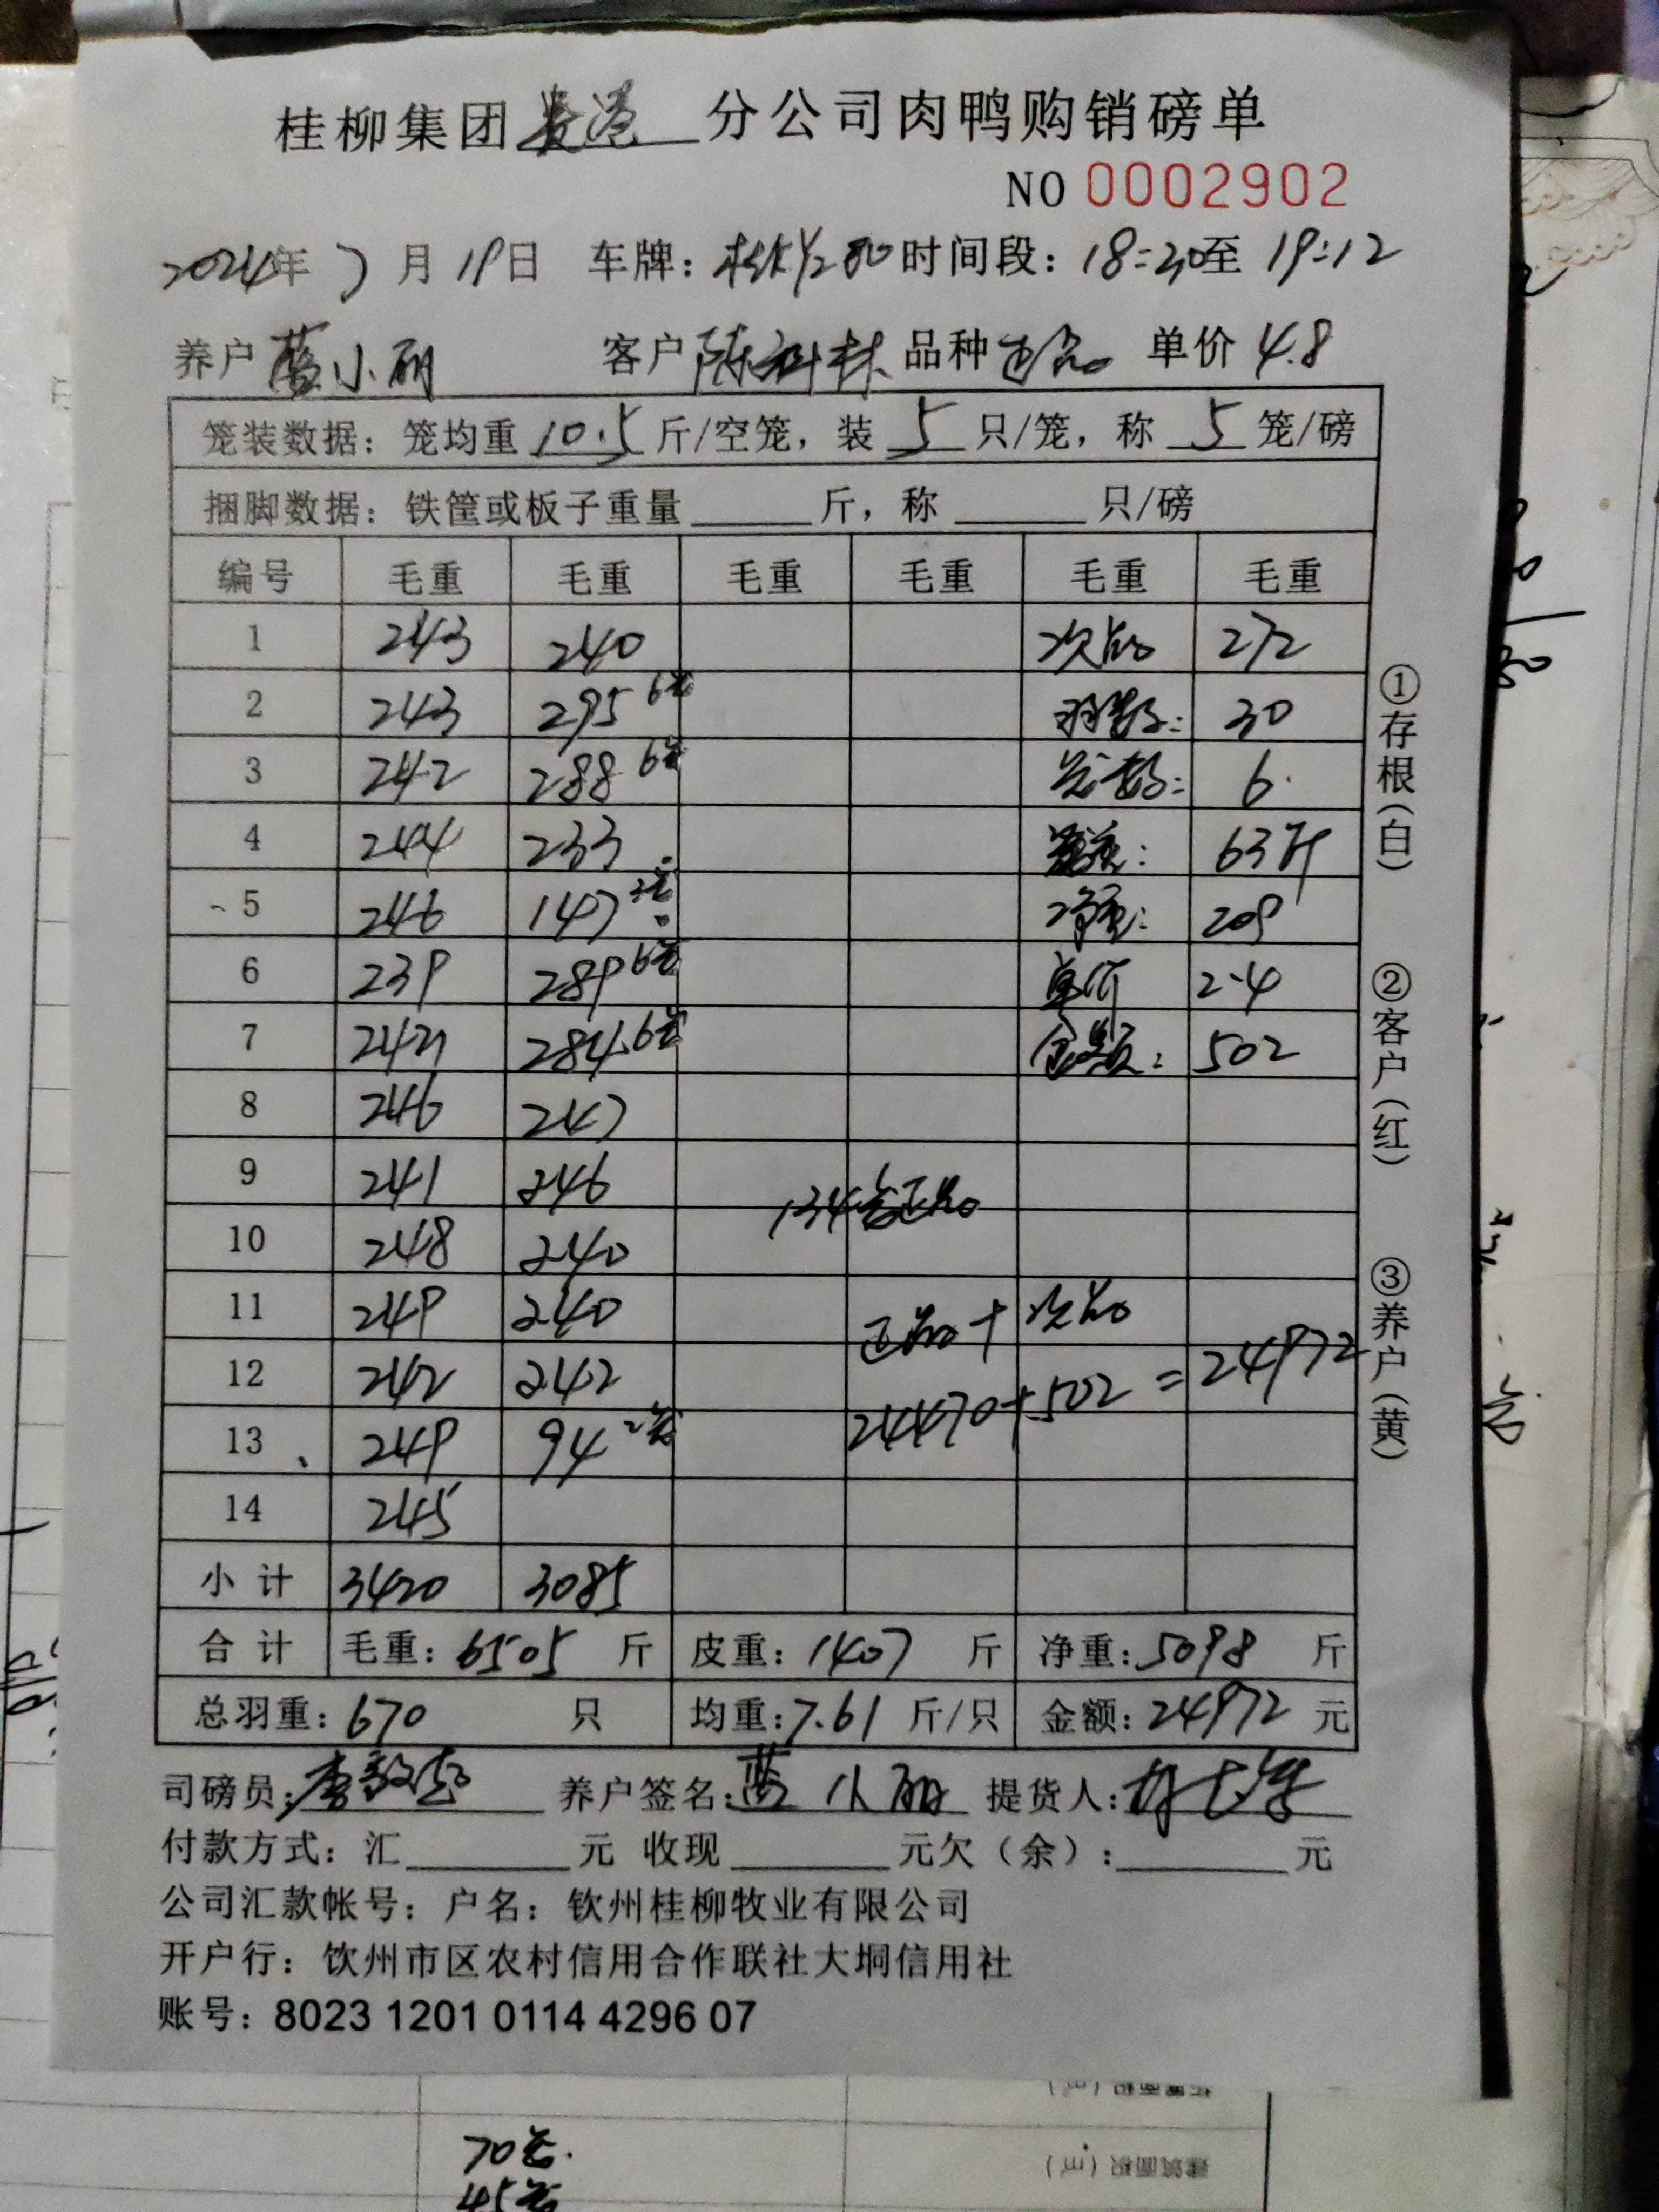 桂柳集团贵港分公司肉鸭购销磅单
NO 0002902
2024年7月19日 车牌: 时间段: 18:20至 19:12
养户 蓝小丽 客户 陈科林 品种 正品 单价 4.8
笼装数据: 笼均重 10.5 斤/空笼, 装 5 只/笼, 称 5 笼/磅
捆脚数据: 铁筐或板子重量 斤, 称 只/磅
编号 毛重 毛重 毛重 毛重 毛重 毛重
1 243 240 次品 272
2 243 295 6笼 羽数: 30
3 242 288 6笼 笼数: 6
4 244 233 笼重: 63斤
5 246 147 3笼 净重: 209
6 239 289 6笼 单价 2.4
7 242 284 6笼 金额: 502
8 246 247
9 241 246
134笼正品
10 248 240
11 249 240 正品 + 次品
12 242 242 24470+502=24972
13 249 94 2笼
14 245
小计 3420 3085
合计 毛重: 6505 斤 皮重: 1407 斤 净重: 5098 斤
总羽重: 670 只 均重: 7.61 斤/只 金额: 24972 元
司磅员: 养户签名: 蓝小丽 提货人:
付款方式: 汇 元 收现 元欠(余): 元
公司汇款帐号: 户名: 钦州桂柳牧业有限公司
开户行: 钦州市区农村信用合作联社大垌信用社
账号: 8023 1201 0114 4296 07
①存根(白)
②客户(红)
③养户(黄)
70笼.
45笼